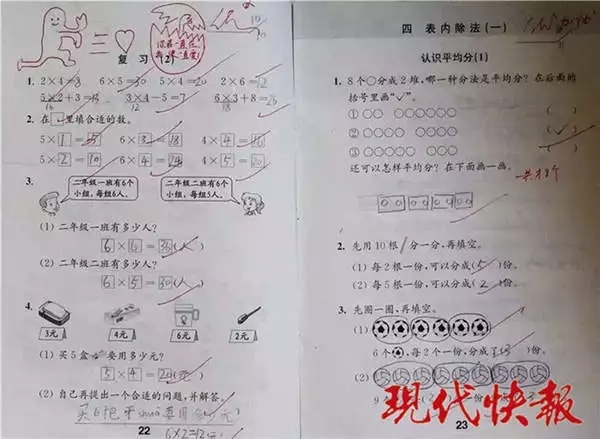 复 习 (2)
1. 2×4=8 6×5=30 5×4=20 2×6=12
5×2+3=13 3×4-5=7 6×3+8=26
2. 在□里填合适的数。
5×1=5 6×3=18 4×4=16
5×2=10 6×4=24 4×5=20
3.
二年级一班有6个小组,每组6人。
二年级二班有6个小组,每组5人。
(1) 二年级一班有多少人?
6×6=36(人)
(2) 二年级二班有多少人?
6×5=30(人)
4.
3元 4元 6元 2元
(1) 买5盒要用多少元?
5×4=20(元)
(2) 自己再提出一个合适的问题,并解答。
买6把
6×2=12
22
四 表内除法(一)
认识平均分(1)
1. 8个○分成2堆,哪一种分法是平均分?在后面的
括号里画“✓”。
① ○○ ○○○○○○ ( )
② ○○○○ ○○○○ (✓)
③ ○○○○○ ○○○ ( )
还可以怎样平均分?在下面画一画。
一共8个
2. 先用10根分一分,再填空。
(1) 每2根一份,可以分成(5)份。
(2) 每5根一份,可以分成(2)份。
3. 先圈一圈,再填空。
(1)
6个,每2个一份,分成了(3)
(2)
9
23
现代快報